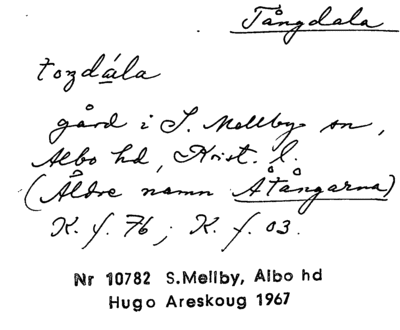 Tångdala
tozdála
gård i S. Mellby sn,
Albo hd, Krist. l.
(Äldre namn Åtångarna)
K. f. 76; K. f. 03.
Nr 10782 S.Mellby, Albo hd
Hugo Areskoug 1967